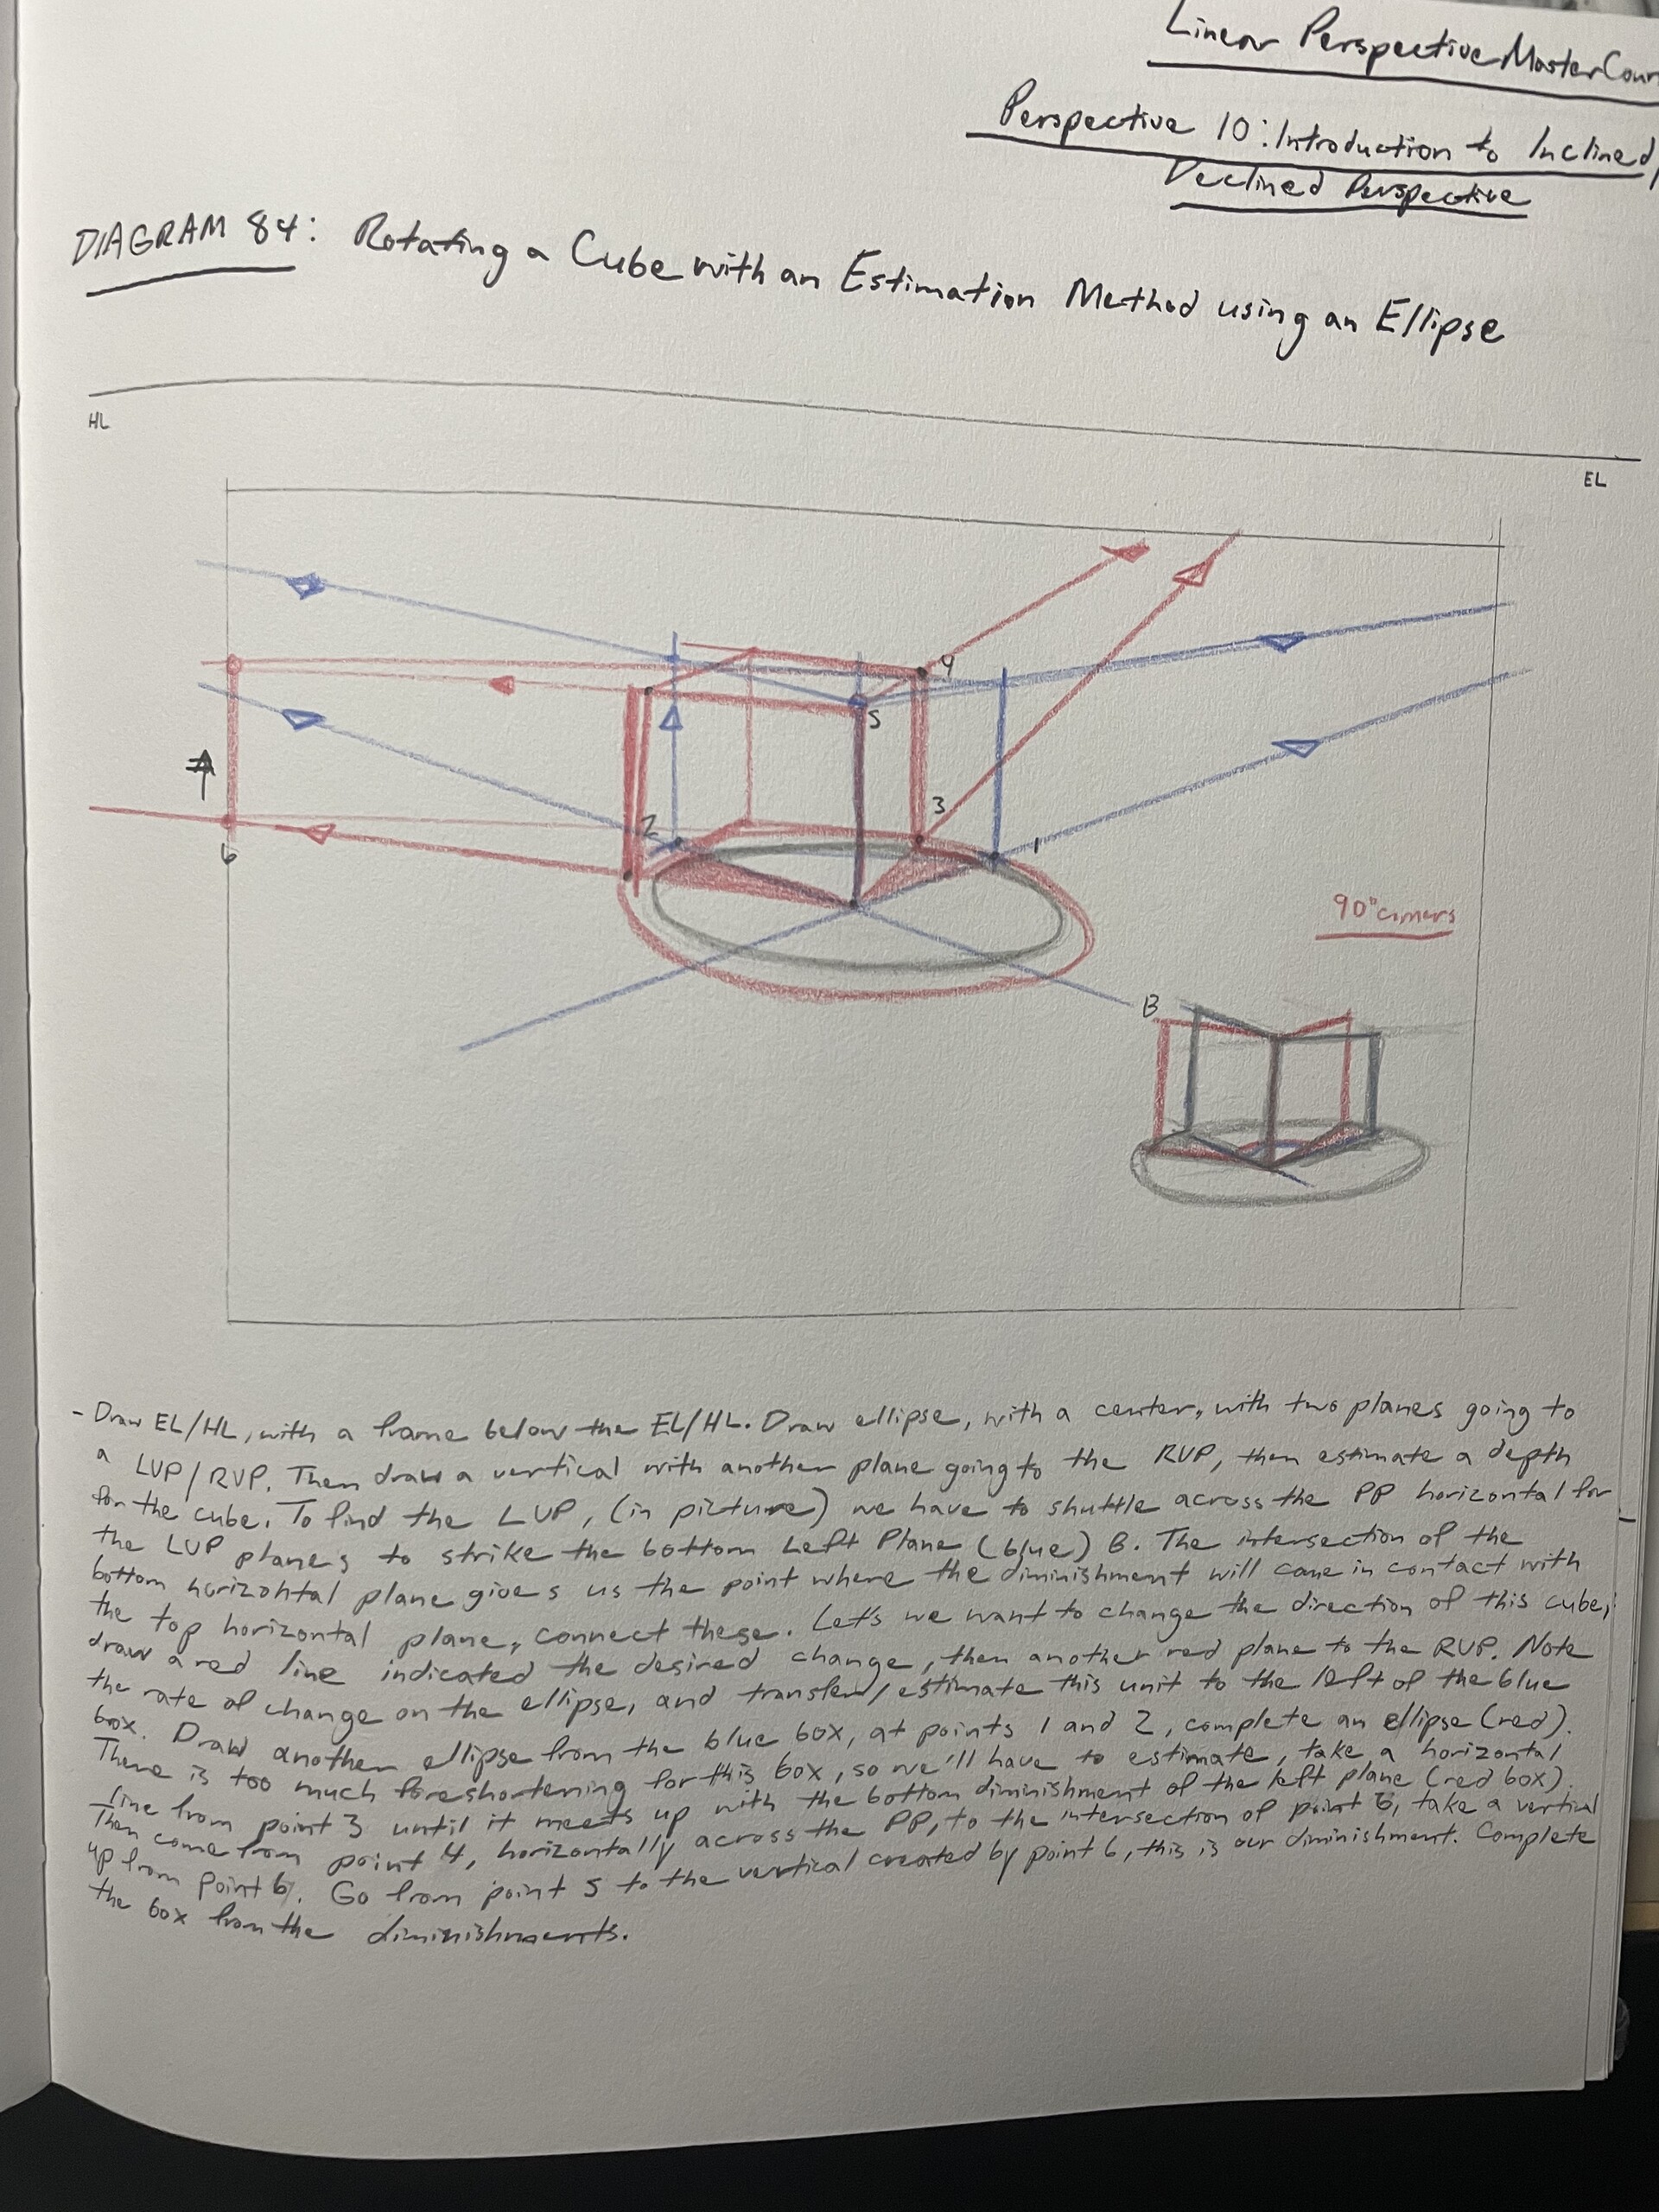 Linear Perspective Master Cour
Perspective 10: Introduction to Inclined/
Declined Perspective
DIAGRAM 84: Rotating a Cube with an Estimation Method using an Ellipse
HL
EL
4
5
3
2
1
6
90° corners
B
- Draw EL/HL, with a frame below the EL/HL. Draw ellipse, with a center, with two planes going to
a LVP/RVP. Then draw a vertical with another plane going to the RVP, then estimate a depth
for the cube. To find the LVP, (in picture) we have to shuttle across the PP horizontal for
the LVP planes to strike the bottom Left Plane (blue) B. The intersection of the
bottom horizontal plane gives us the point where the diminishment will come in contact with
the top horizontal plane, connect these. Let's we want to change the direction of this cube,
draw a red line indicated the desired change, then another red plane to the RVP. Note
the rate of change on the ellipse, and transfer/estimate this unit to the left of the blue
box. Draw another ellipse from the blue box, at points 1 and 2, complete an ellipse (red).
There is too much foreshortening for this box, so we'll have to estimate, take a horizontal
line from point 3 until it meets up with the bottom diminishment of the left plane (red box).
Then come from point 4, horizontally across the PP, to the intersection of point 6, take a vertical
up from point 6. Go from point 5 to the vertical created by point 6, this is our diminishment. Complete
the box from the diminishments.